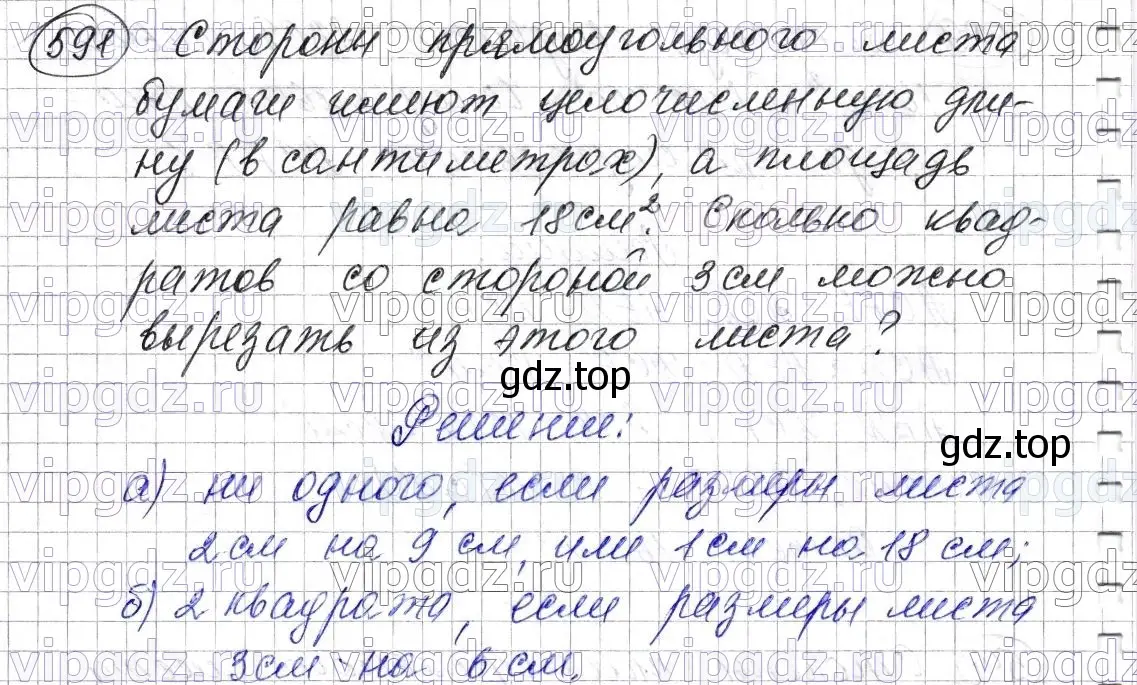 591 Стороны прямоугольного листа
бумаги имеют целочисленную дли-
ну (в сантиметрах), а площадь
листа равна 18 см². Сколько квад-
ратов со стороной 3 см можно
вырезать из этого листа?
gdz.top
Решение:
gdz.top
а) ни одного, если размеры листа
2 см на 9 см, или 1 см на 18 см;
б) 2 квадрата, если размеры листа
3 см на 6 см.